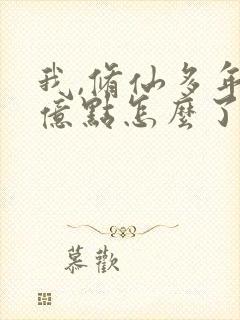 我,脩仙多年
億點怎麼了
慕歡